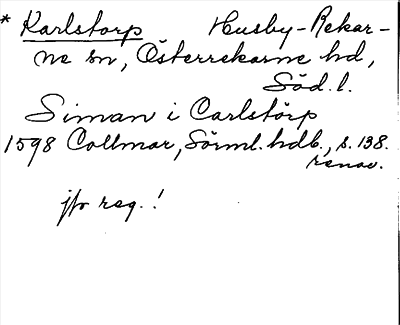 * Karlstorp Husby-Rekar-
ne sn, Österrekarne hd,
Söd. l.
Siman i Carlstörp
1598 Collmar, Sörml. hdb., s. 138.
renov.
jfr reg.!